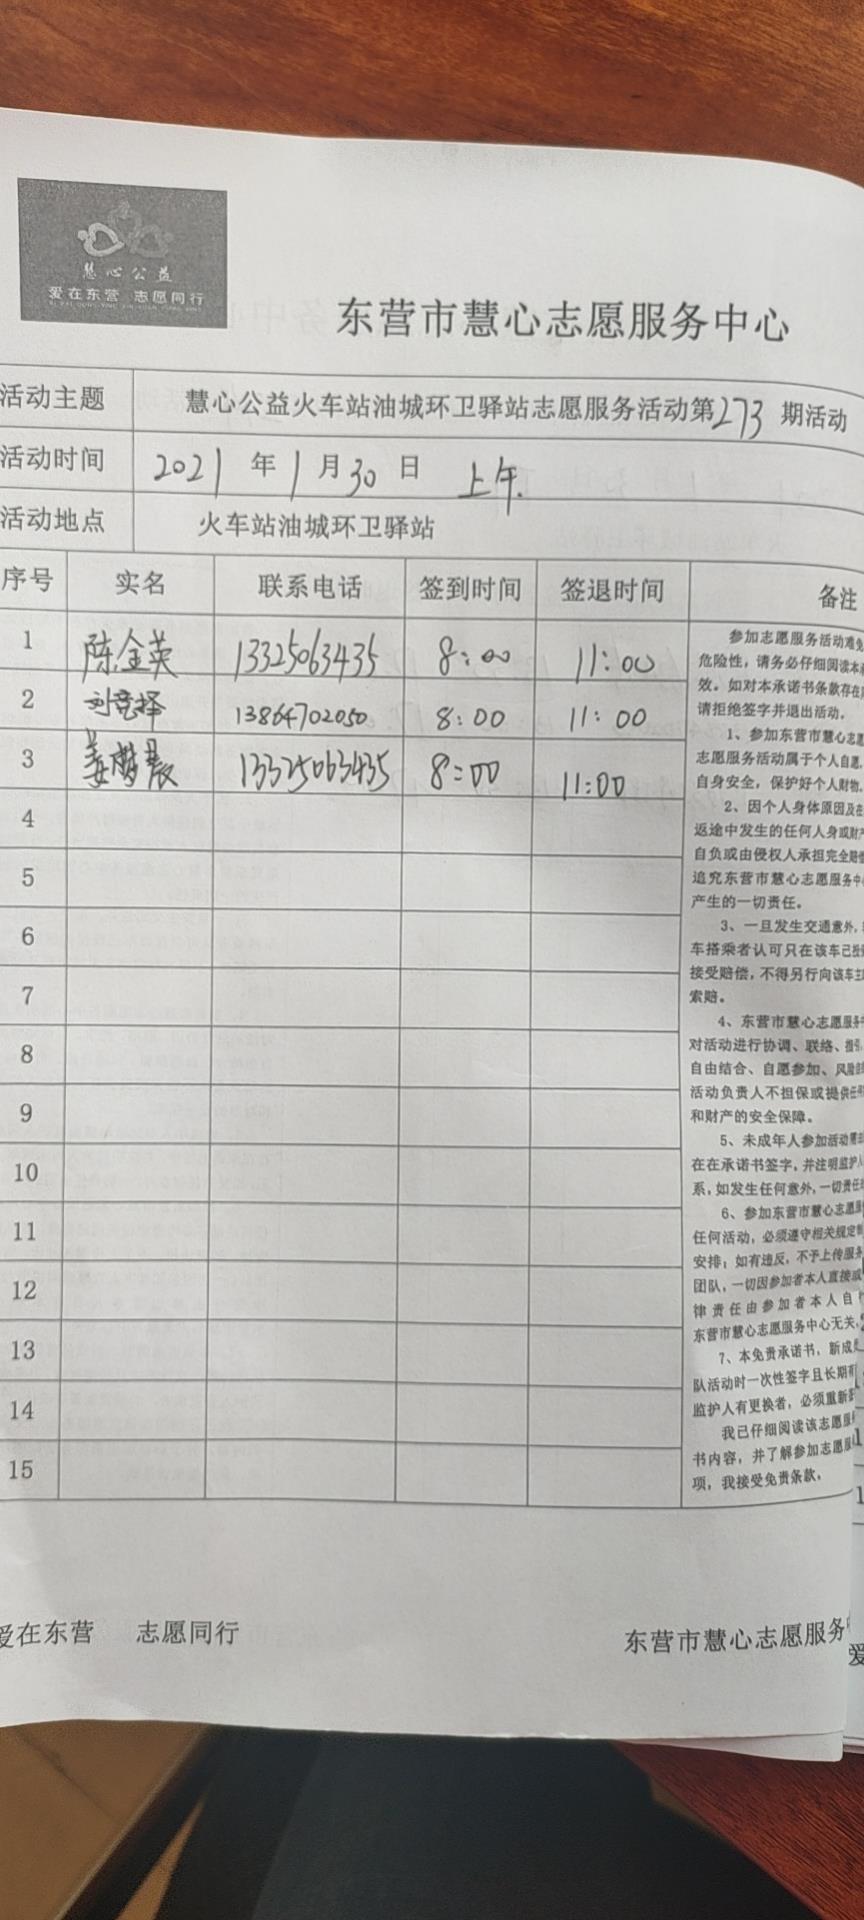 慧心公益
爱在东营 志愿同行
东营市慧心志愿服务中心
活动主题 慧心公益火车站油城环卫驿站志愿服务活动第273期活动
活动时间 2021年1月30日 上午
活动地点 火车站油城环卫驿站
序号 实名 联系电话 签到时间 签退时间 备注
1 陈金英 13325063435 8:00 11:00
2 刘竞择 13864702050 8:00 11:00
3 姜梦晨 13325063435 8:00 11:00
4
5
6
7
8
9
10
11
12
13
14
15
参加志愿服务活动难免
危险性，请务必仔细阅读本承
效。如对本承诺书条款存在
请拒绝签字并退出活动。
1、参加东营市慧心志愿
志愿服务活动属于个人自愿，
自身安全，保护好个人财物，
2、因个人身体原因及在
返途中发生的任何人身或财产
自负或由侵权人承担完全赔偿
追究东营市慧心志愿服务中
产生的一切责任。
3、一旦发生交通意外，
车搭乘者认可只在该车已投
接受赔偿，不得另行向该车主
索赔。
4、东营市慧心志愿服务
对活动进行协调、联络、指引，
自由结合、自愿参加、风险自
活动负责人不担保或提供任何
和财产的安全保障。
5、未成年人参加活动需
在在承诺书签字，并注明监护人
系，如发生任何意外，一切责任
6、参加东营市慧心志愿服
任何活动，必须遵守相关规定
安排；如有违反，不予上传服务
团队，一切因参加者本人直接或
律责任由参加者本人自
东营市慧心志愿服务中心无关。
7、本免责承诺书，新成员
队活动时一次性签字且长期有
监护人有更换者，必须重新签
我已仔细阅读该志愿服
书内容，并了解参加志愿服
项，我接受免责条款。
爱在东营 志愿同行
东营市慧心志愿服务中
爱